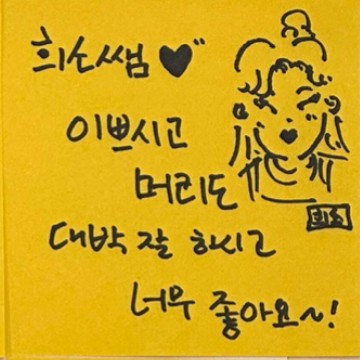 희소쌤 ♥
이쁘시고
머리도
대박 잘 하시고
너무 좋아요~!